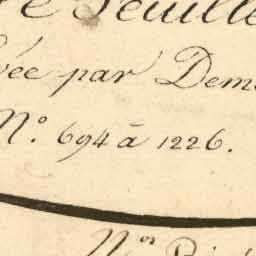 Feuille
vée par Dem
N.º 694 à 1226.
N.os